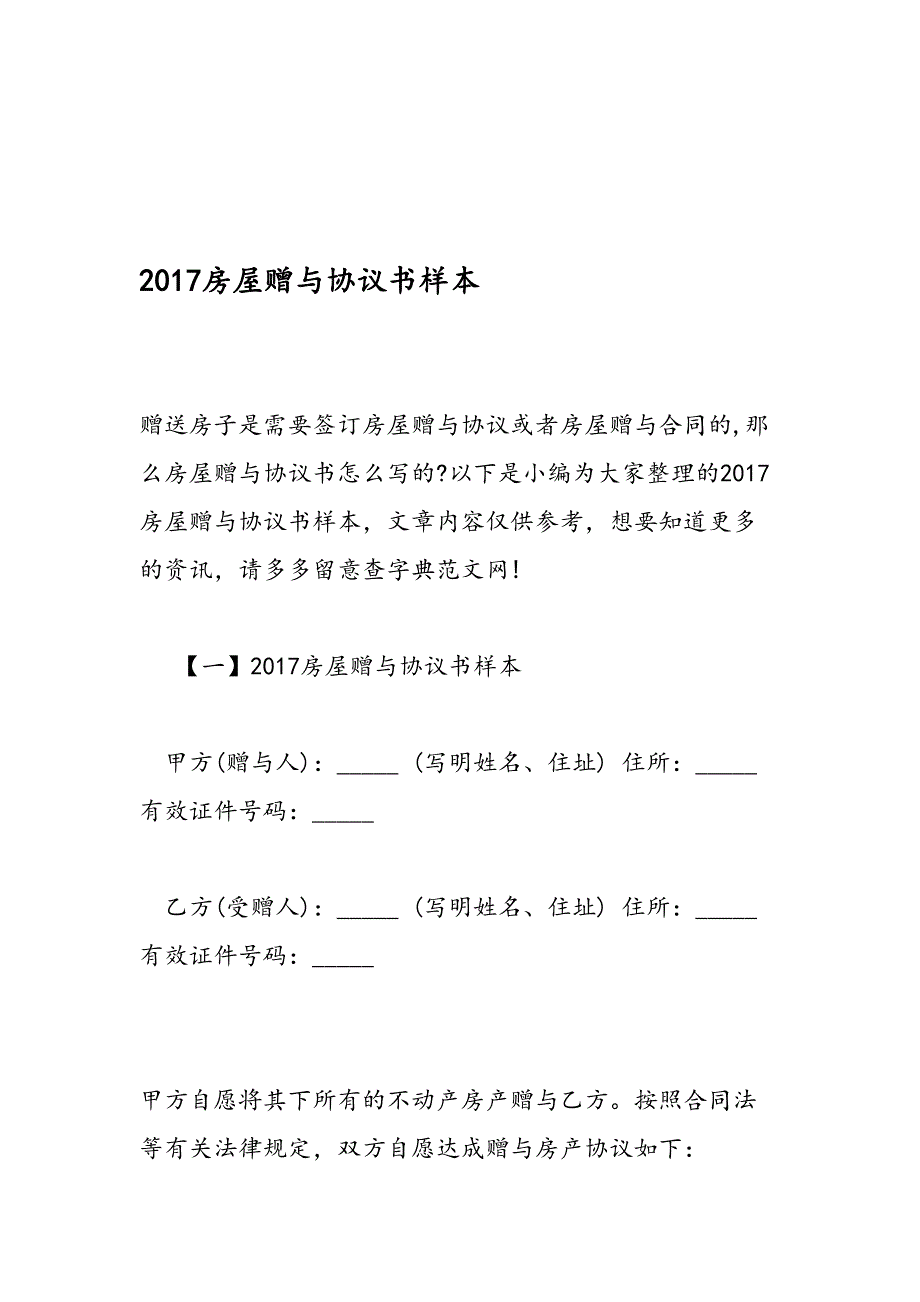 2017房屋赠与协议书样本
赠送房子是需要签订房屋赠与协议或者房屋赠与合同的,那
么房屋赠与协议书怎么写的?以下是小编为大家整理的2017
房屋赠与协议书样本，文章内容仅供参考，想要知道更多
的资讯，请多多留意查字典范文网!
【一】2017房屋赠与协议书样本
甲方(赠与人)：_____ (写明姓名、住址) 住所：_____
有效证件号码：_____
乙方(受赠人)：_____ (写明姓名、住址) 住所：_____
有效证件号码：_____
甲方自愿将其下所有的不动产房产赠与乙方。按照合同法
等有关法律规定，双方自愿达成赠与房产协议如下：